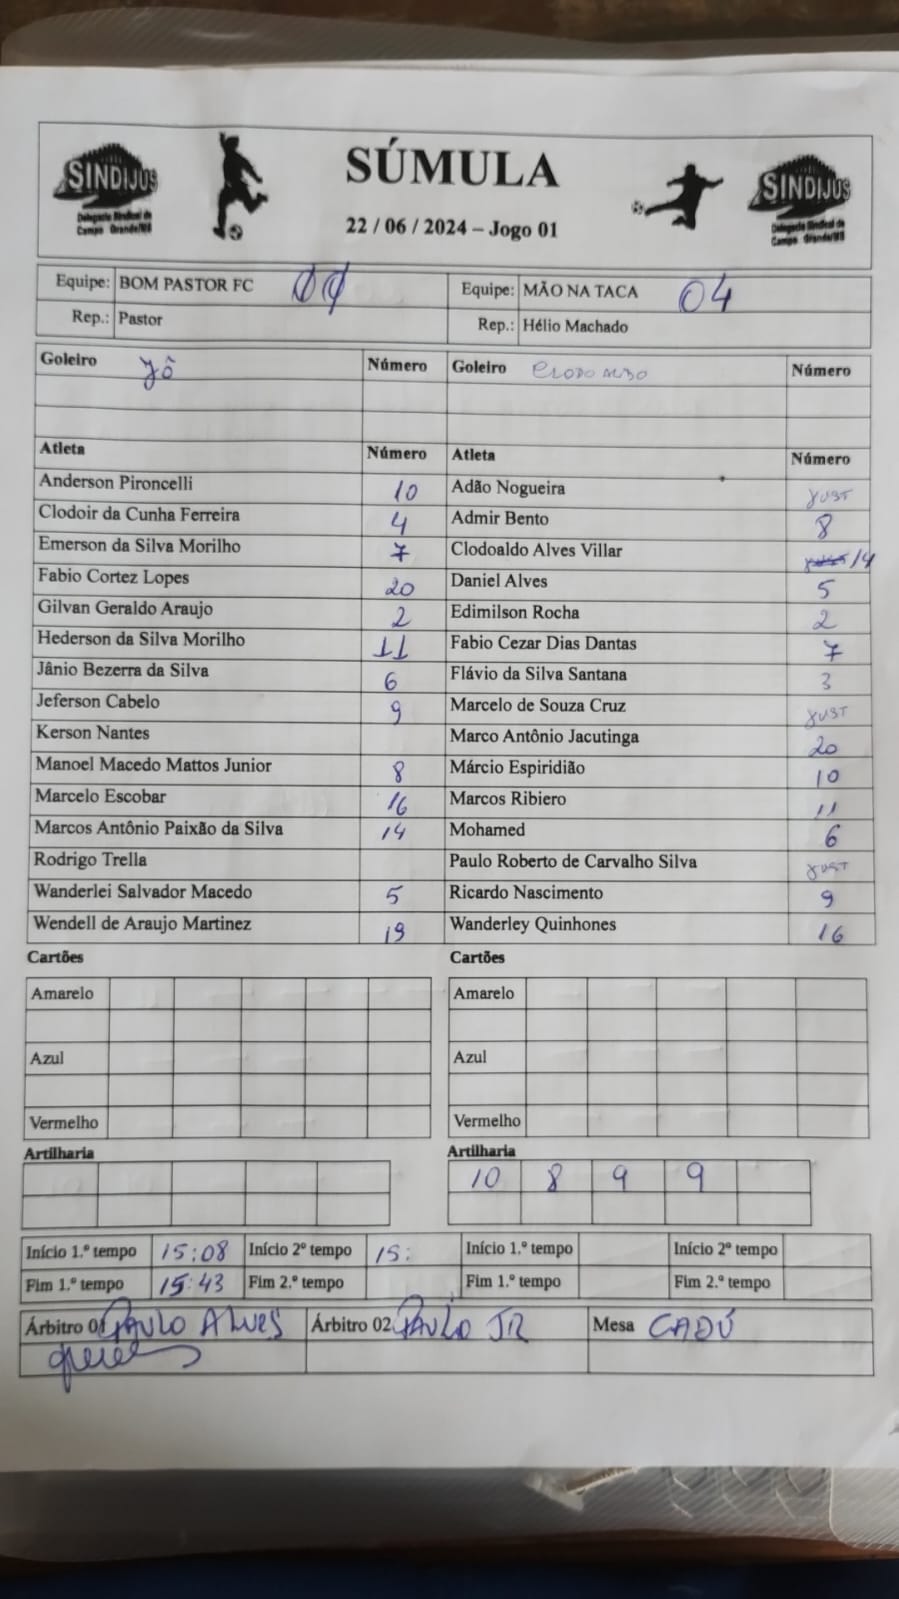 SÚMULA
SINDIJUS
Delegacia Sindical de
Campo Grande/MS
22 / 06 / 2024 – Jogo 01
SINDIJUS
Delegacia Sindical de
Campo Grande/MS
Equipe: BOM PASTOR FC 00 Equipe: MÃO NA TACA 04
Rep.: Pastor Rep.: Hélio Machado
Goleiro Jô Número Goleiro CLODOALDO Número
Atleta Número Atleta Número
Anderson Pironcelli 10 Adão Nogueira JUST
Clodoir da Cunha Ferreira 4 Admir Bento 8
Emerson da Silva Morilho 7 Clodoaldo Alves Villar 14
Fabio Cortez Lopes 20 Daniel Alves 5
Gilvan Geraldo Araujo 2 Edimilson Rocha 2
Hederson da Silva Morilho 11 Fabio Cezar Dias Dantas 7
Jânio Bezerra da Silva 6 Flávio da Silva Santana 3
Jeferson Cabelo 9 Marcelo de Souza Cruz JUST
Kerson Nantes Marco Antônio Jacutinga 20
Manoel Macedo Mattos Junior 8 Márcio Espiridião 10
Marcelo Escobar 16 Marcos Ribiero 11
Marcos Antônio Paixão da Silva 14 Mohamed 6
Rodrigo Trella Paulo Roberto de Carvalho Silva JUST
Wanderlei Salvador Macedo 5 Ricardo Nascimento 9
Wendell de Araujo Martinez 19 Wanderley Quinhones 16
Cartões Cartões
Amarelo Amarelo
Azul Azul
Vermelho Vermelho
Artilharia Artilharia
10 8 9 9
Início 1.º tempo 15:08 Início 2º tempo 15: Início 1.º tempo Início 2º tempo
Fim 1.º tempo 15:43 Fim 2.º tempo Fim 1.º tempo Fim 2.º tempo
Árbitro 01 PAULO ALVES Árbitro 02 PAULO JR Mesa CADÚ